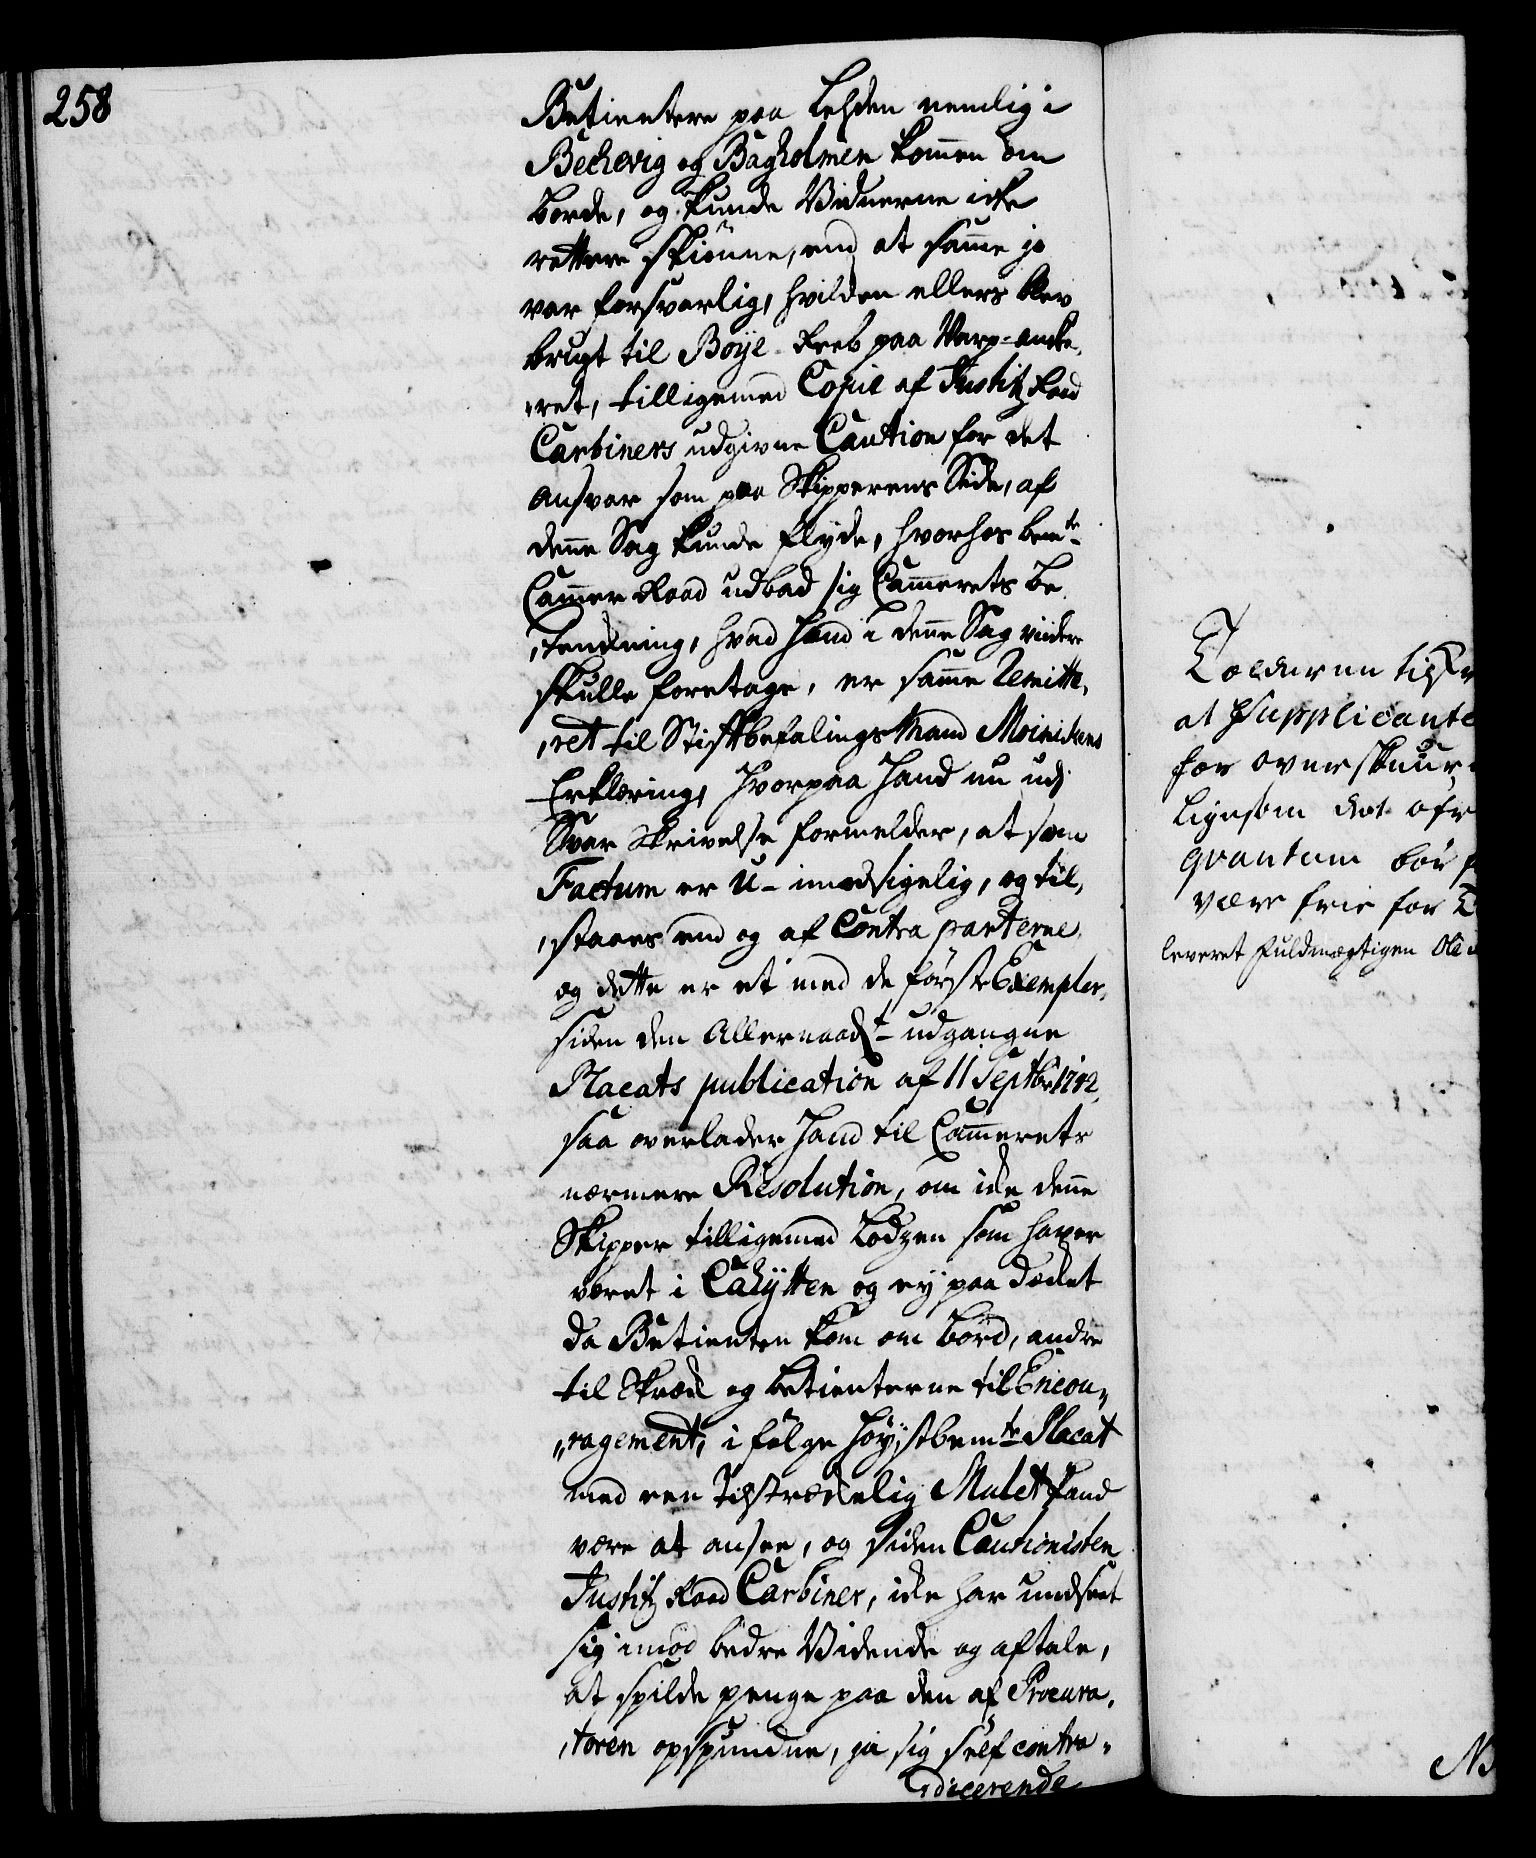 258
Betientere paa Leeden nemlig i
Bechevig og Bagholmen kommen om
borde, og kunde Vidnerne icke
rettere skiönne, end at samme jo
var forsvarlig, hvilcken ellers blev
brugt til Böye-Reeb paa Varp-ancke,
,ret, tilligemed Copie af Justitz Raad
Carbiners udgivne Caution for det
ansvar som paa Skipperens Side, af
denne Sag kunde flyde, hvorhos bemte
Cammer Raad udbad sig Cammerets be,
,tenckning, hvad Hand i denne Sag videre
skulle foretage, er samme Remitte,
,ret til Stiftbefalings Mand Moinichens
Erklæring, Hvorpaa Hand nu udj
Svar Skrivelse formelder, at som
Factum er U-imodsigelig, og til,
,staaes end og af Contra parterne,
og dette er et med de förste Exempler,
siden den Allernaadt udgangne
Placats publication af 11 Septbr 1742,
saa overlader Hand til Cammerets
nærmere Resolution, om icke denne
Skipper tilligemed Lodzen som haver
været i Cahytten og ey paa Decket
da Betienten kom om bord, andre
til Skræk og betienterne til Encou,,
,,ragement, i fölge höystbemte Placat
med een Tilstreckelig Mulct kand
være at ansee, og siden Cautionisten
Justitz Raad Carbiner, icke har undseet
sig imod bedre Vidende og aftale,
at spilde penge paa den af Procura,
,toren opspundne, ja sig self contra,,
,,dicerende
Tolderen
at Supplicante
for overskuur
ligesom det
quantum bör
være frie for
leveret fuldmægtigen